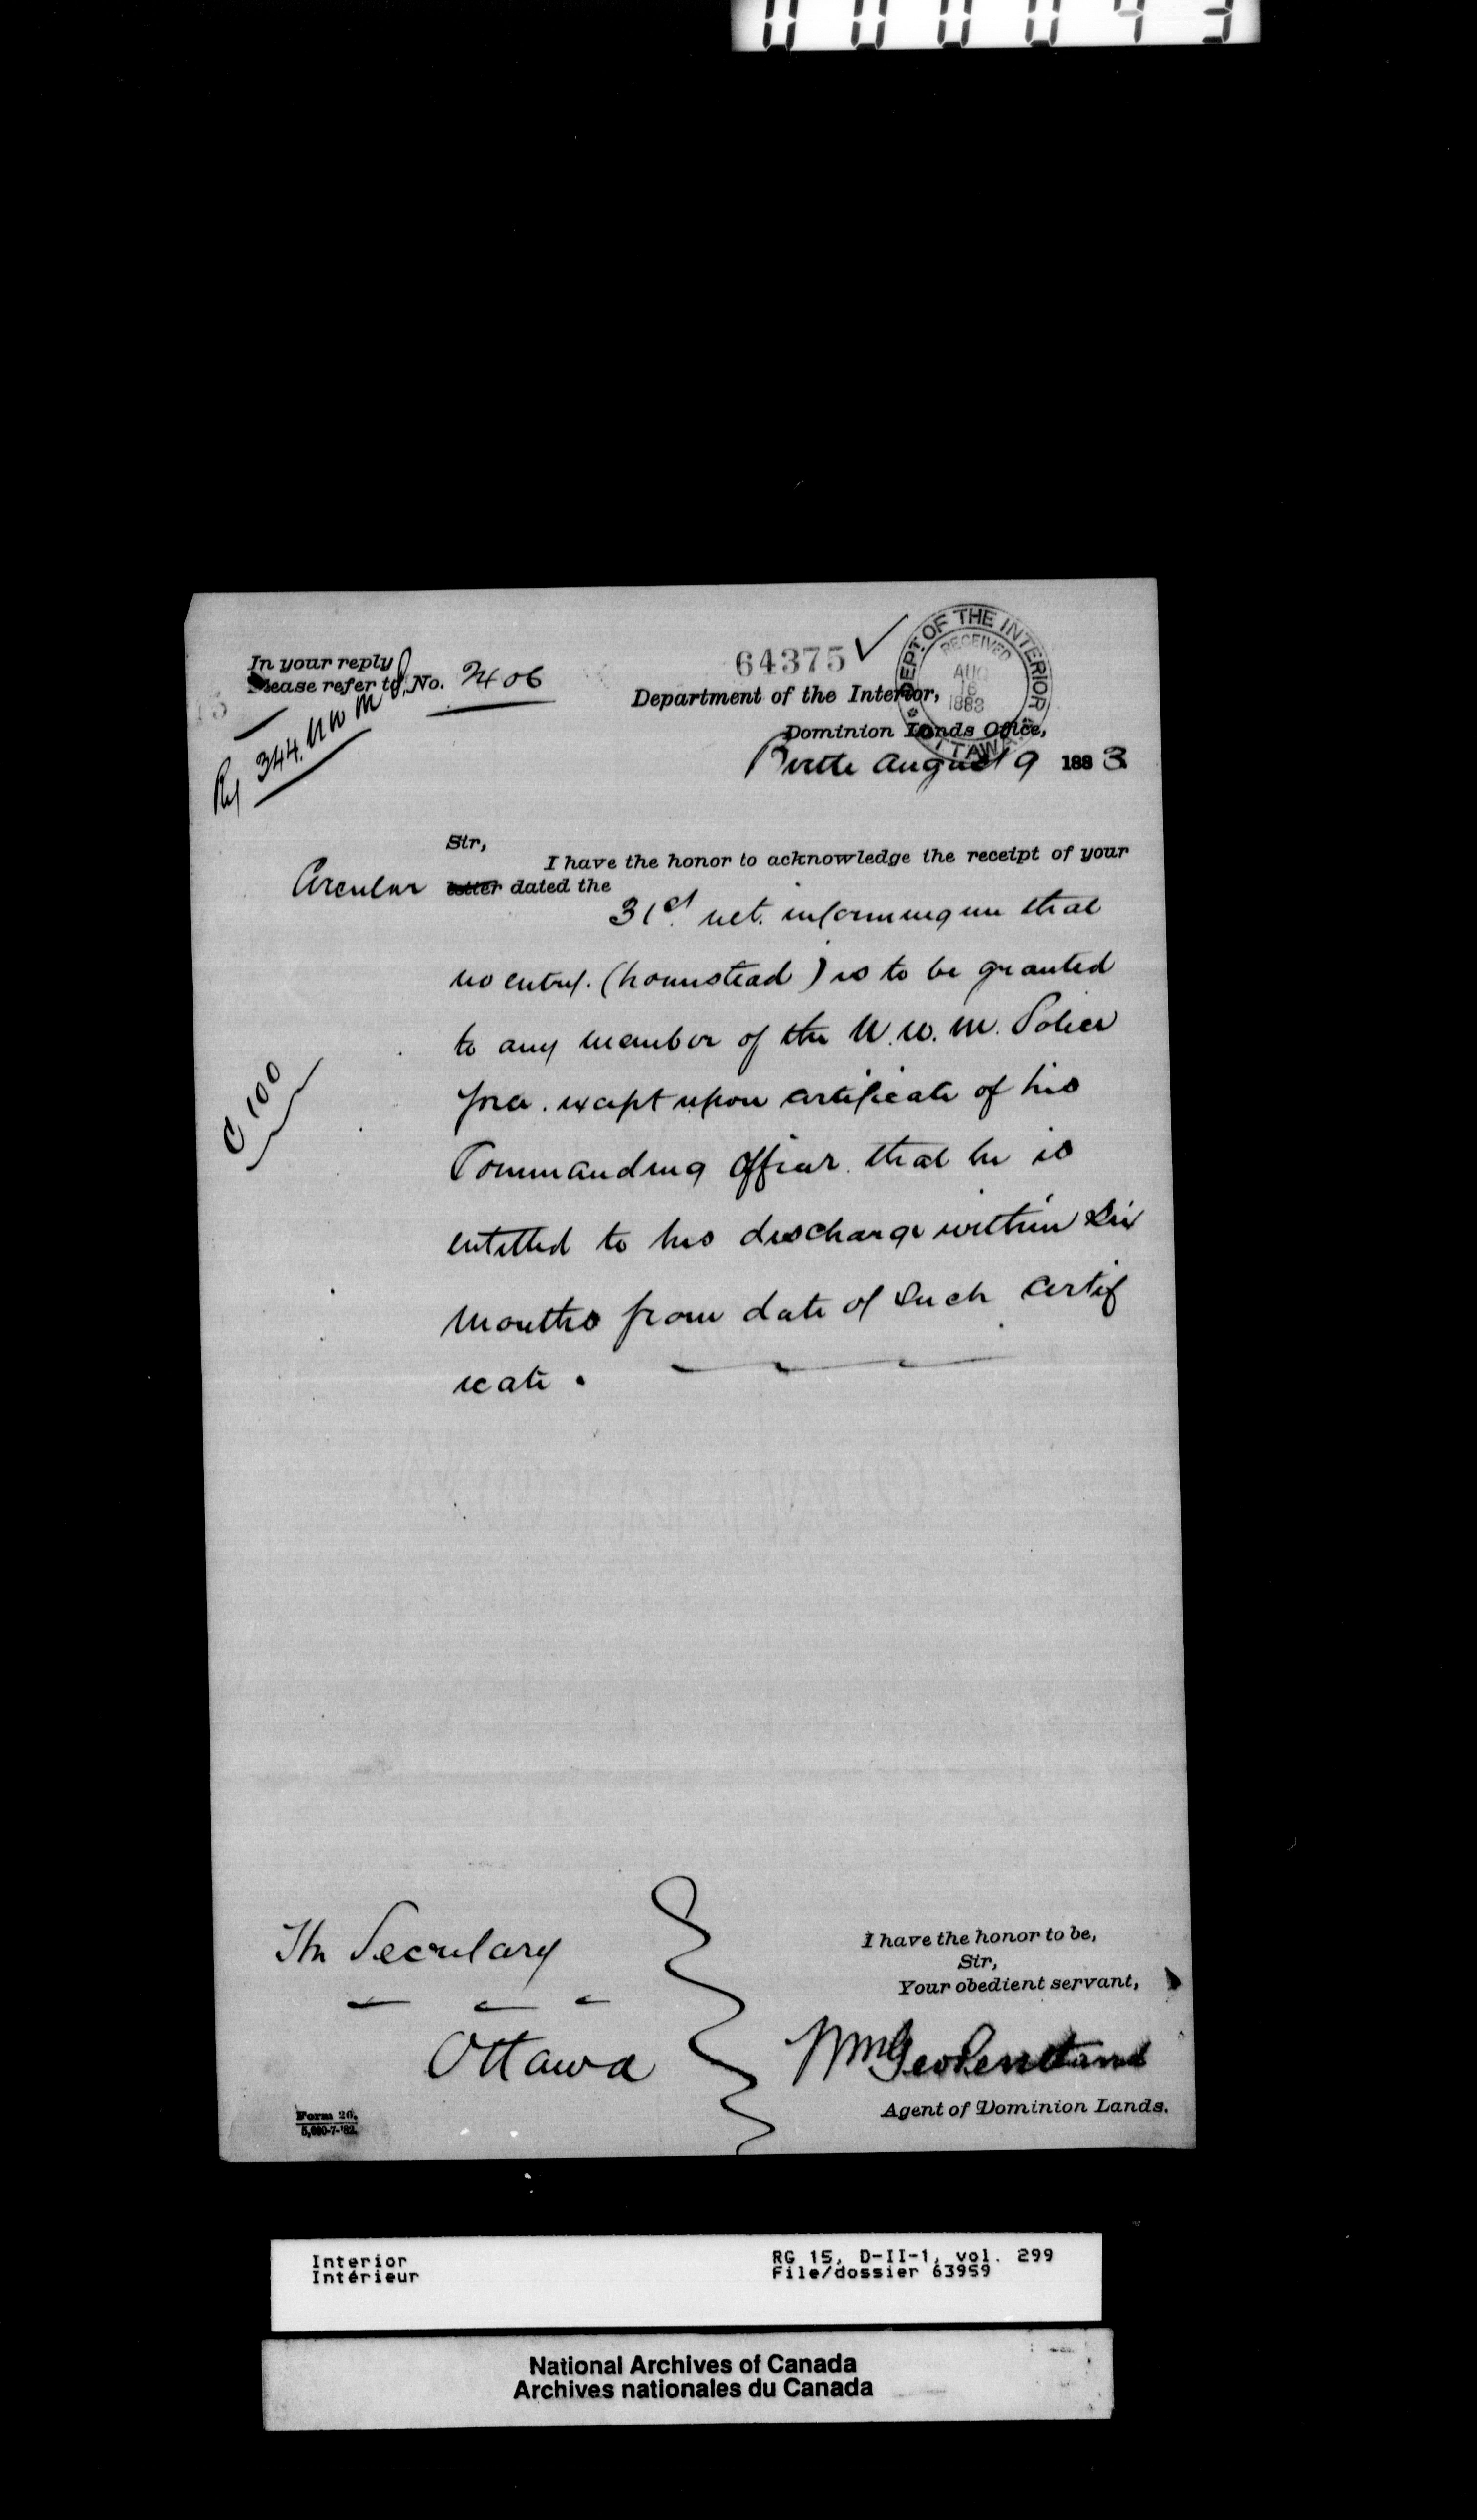 000043
In your reply
Please refer to No. 2406
64375
DEPT. OF THE INTERIOR
RECEIVED
AUG
16
1883
OTTAWA
Department of the Interior,
Dominion Lands Office,
Birtle August 9 1883
344. N W M P
Sir,
I have the honor to acknowledge the receipt of your
Circular letter dated the
31st ult. informing me that
no entry. (homestead) is to be granted
to any member of the N. W. M. Police
force. except upon certificate of his
Commanding Officer. that he is
entitled to his discharge within Six
Months from date of Such Certif
icate.
C 100
The Secretary
Ottawa
I have the honor to be,
Sir,
Your obedient servant,
Wm Geo Pentland
Agent of Dominion Lands.
Form 26.
5,000-7-'82.
Interior
Intérieur
RG 15, D-II-1, vol. 299
File/dossier 63959
National Archives of Canada
Archives nationales du Canada